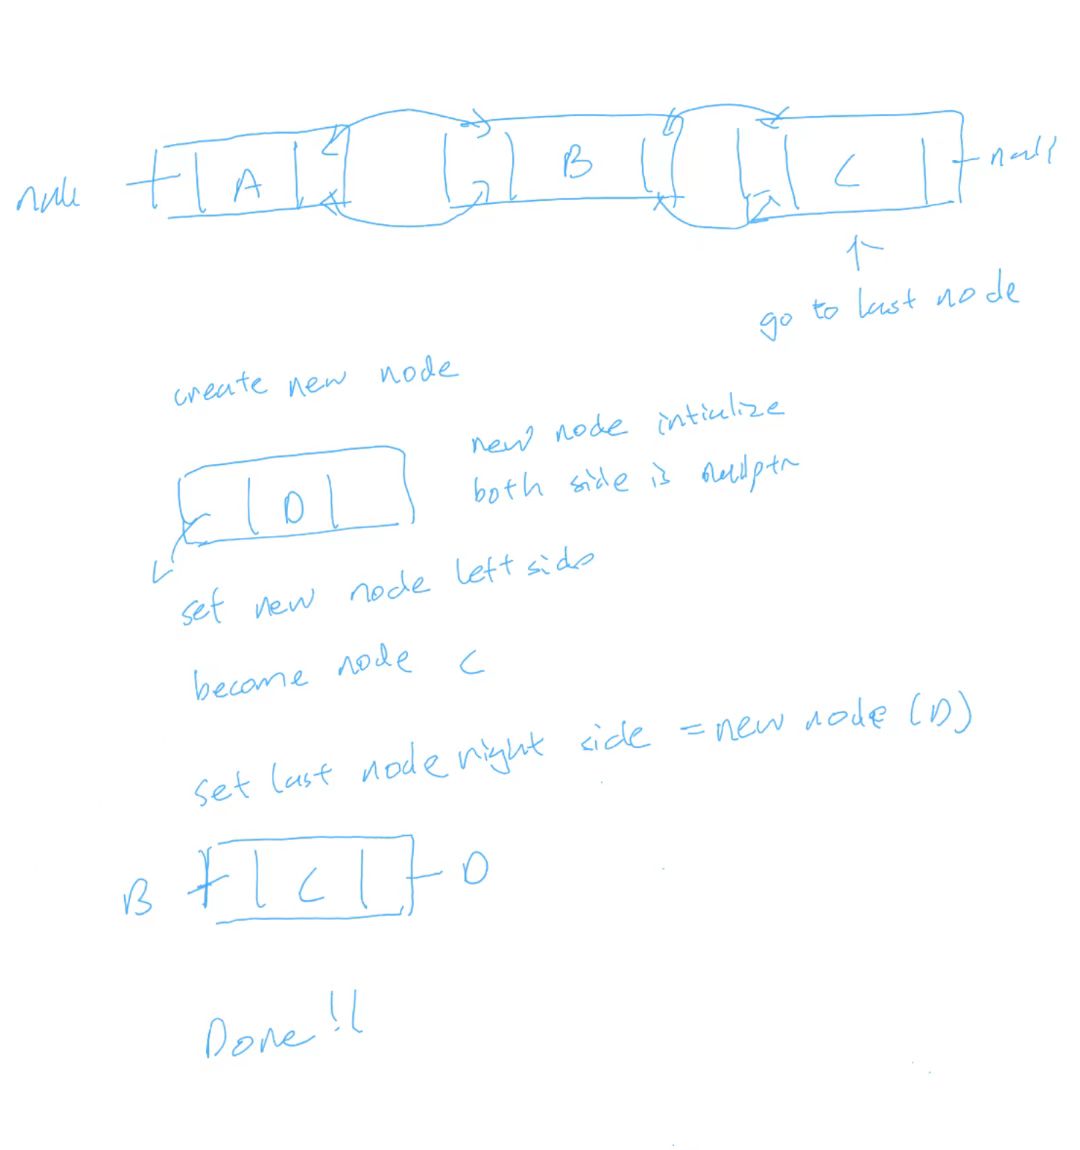 null A B C null
go to last node
create new node
new node intiulize
both side is nullptr
D
set new node left side
become node C
set last node right side = new node (D)
B C D
Done !!